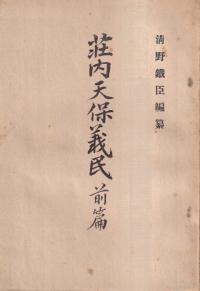 清野鐵臣編纂
荘内天保義民前篇